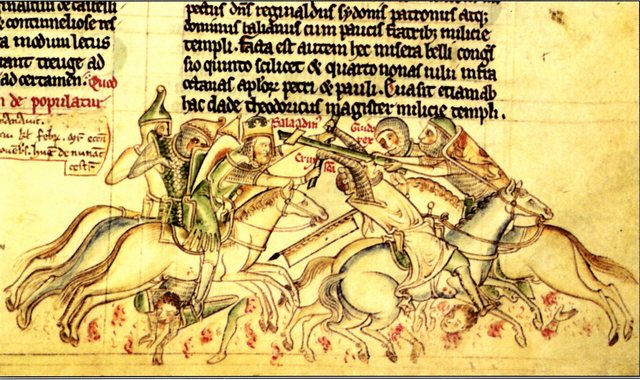 de castelli
& contumeliose res
a modum lecus
treuge ad
ad certamen. Quod
de populatur
pectus dns reginaldus sydonis patronus atq;
dominus balianus cum paucis fratribz milicie
templi. Facta est autem hec misera belli congs
sio quinto scilicet & quarto nonas iulii infra
octauas aplor petri & pauli. Euasit etiam ab
hac clade theodoricus magister milicie templi.
Saladin'
Guido
rex
Crux
sca